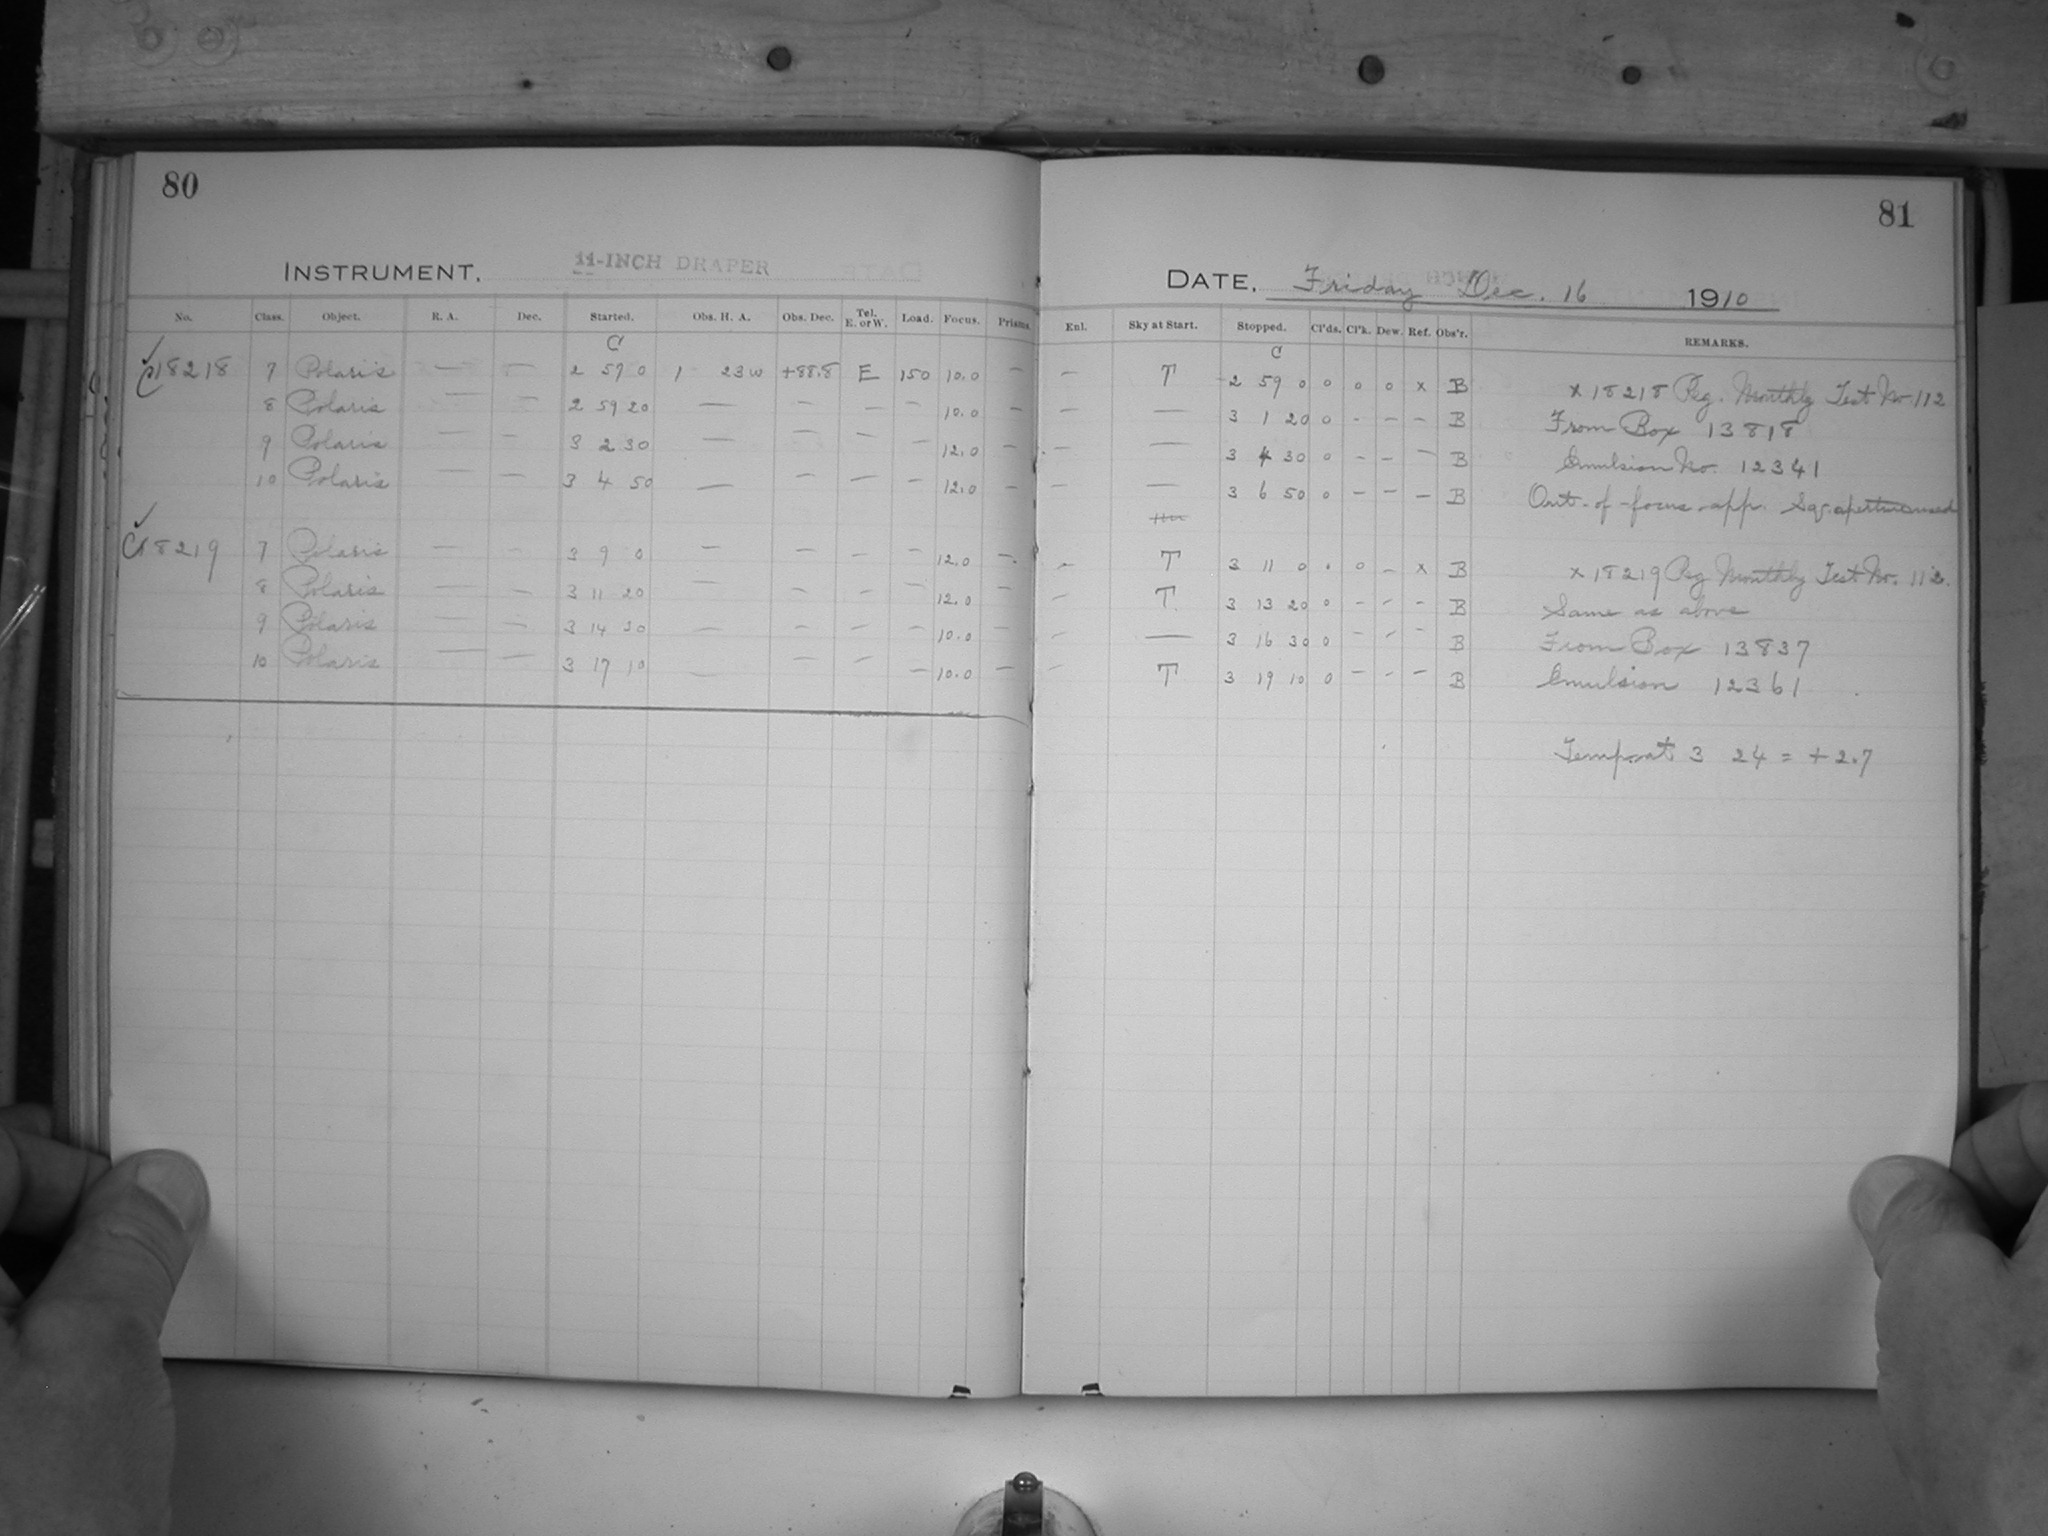 80
INSTRUMENT. 11-INCH DRAPER
No. Class. Object. R. A. Dec. Started. Obs. H. A. Obs. Dec. Tel. E. or W. Load. Focus. Prisms.
C
C18218 7 Polaris — — 2 57 0 1 23w +88.8 E 150 10.0 —
8 Polaris — — 2 59 20 — — — — 10.0 —
9 Polaris — — 3 2 30 — — — — 12.0 —
10 Polaris — — 3 4 50 — — — — 12.0 —
C18219 7 Polaris — — 3 9 0 — — — — 12.0 —
8 Polaris — — 3 11 20 — — — — 12.0 —
9 Polaris — — 3 14 30 — — — — 10.0 —
10 Polaris — — 3 17 10 — — — — 10.0 —
81
DATE. Friday Dec. 16 1910
Enl. Sky at Start. Stopped. Cl'ds. Cl'k. Dew. Ref. Obs'r. REMARKS.
C
— T 2 59 0 0 0 0 x B x 18218 Reg. Monthly Test No. 112
— — 3 1 20 0 - - - B From Box 13818
— — 3 4 30 0 - - - B Emulsion No. 12341
— — 3 6 50 0 - - - B Out-of-focus app. Sq. aperture used
— T 3 11 0 0 0 - x B x 18219 Reg Monthly Test No. 112.
— T 3 13 20 0 - - - B Same as above
— — 3 16 30 0 - - - B From Box 13837
— T 3 19 10 0 - - - B Emulsion 12361
Temp. at 3 24 = +2.7